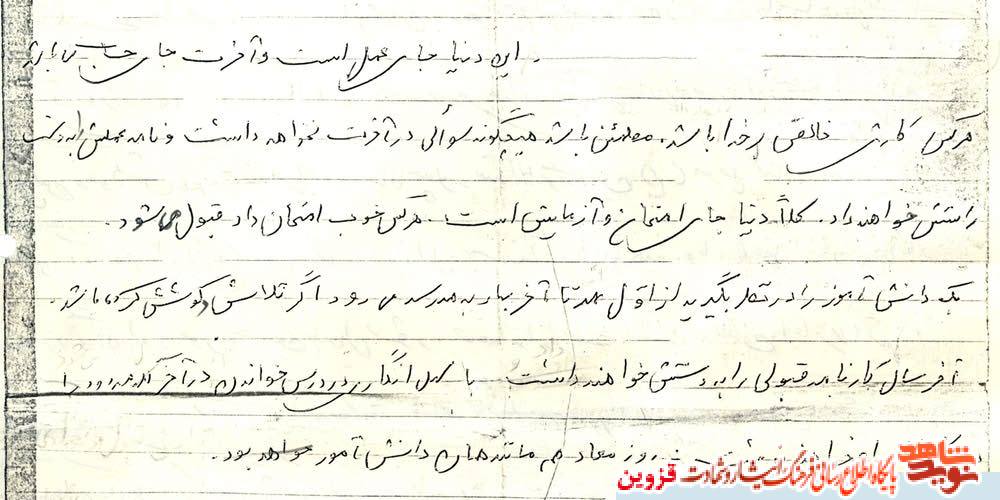 این دنیا جای عمل است و آخرت جای حساب می باشد
هرکس کارش خالص برخدا باشد. مطمئن باشد هیچگونه سوألی در آخرت نخواهد داشت و نامه عملش را به دست
راستش خواهند داد. کلاً دنیا جای امتحان و آزمایش است. هرکس خوب امتحان داد قبول می شود.
یک دانش آموز را در نظر بگیرید از اوّل مهر تا آخر بهار به مدرسه می رود اگر تلاش و کوشش کرده باشد.
آخر سال کارنامه قبولی را به دستش خواهند داشت با سهل انگاری در درس خواندن در آخر
روز معاد هم مانند همان دانش آموز خواهد بود.
نوید شاهد
پایگاه اطلاع رسانی فرهنگ ایثار و شهادت
قزوین